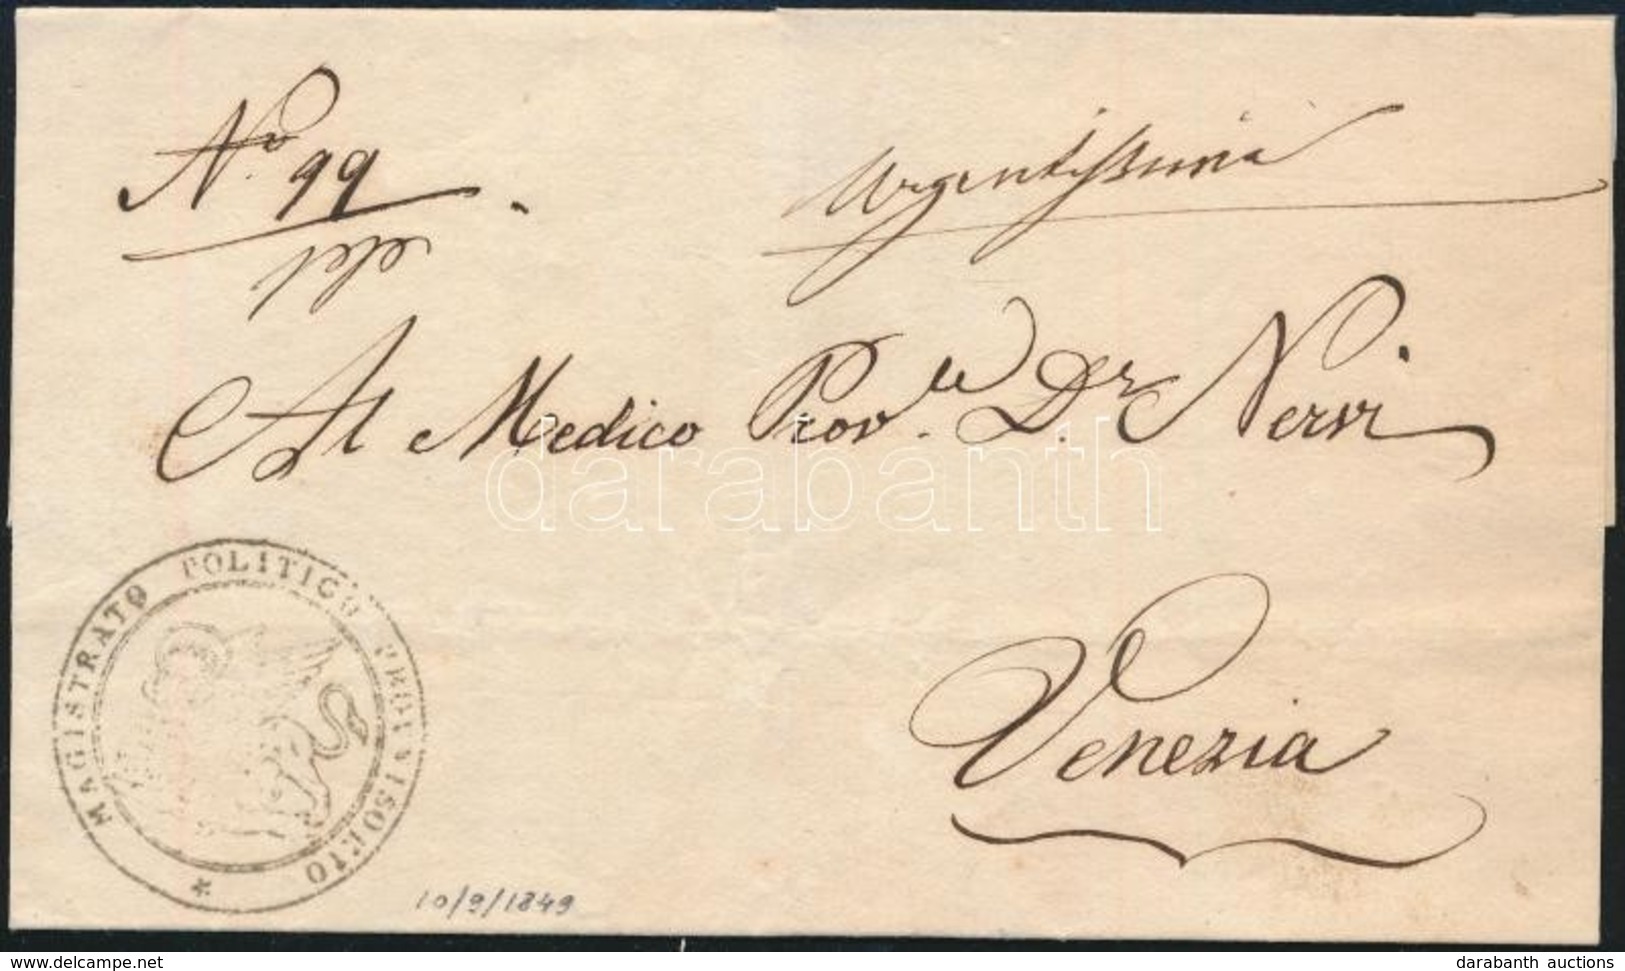 No. 99
Urgentissima
Al Medico Prov.le Dr. Nervi
Venezia
MAGISTRATO POLITICO PROVVISORIO
*
10/9/1849
darabanth
www.delcampe.net
darabanth auctions